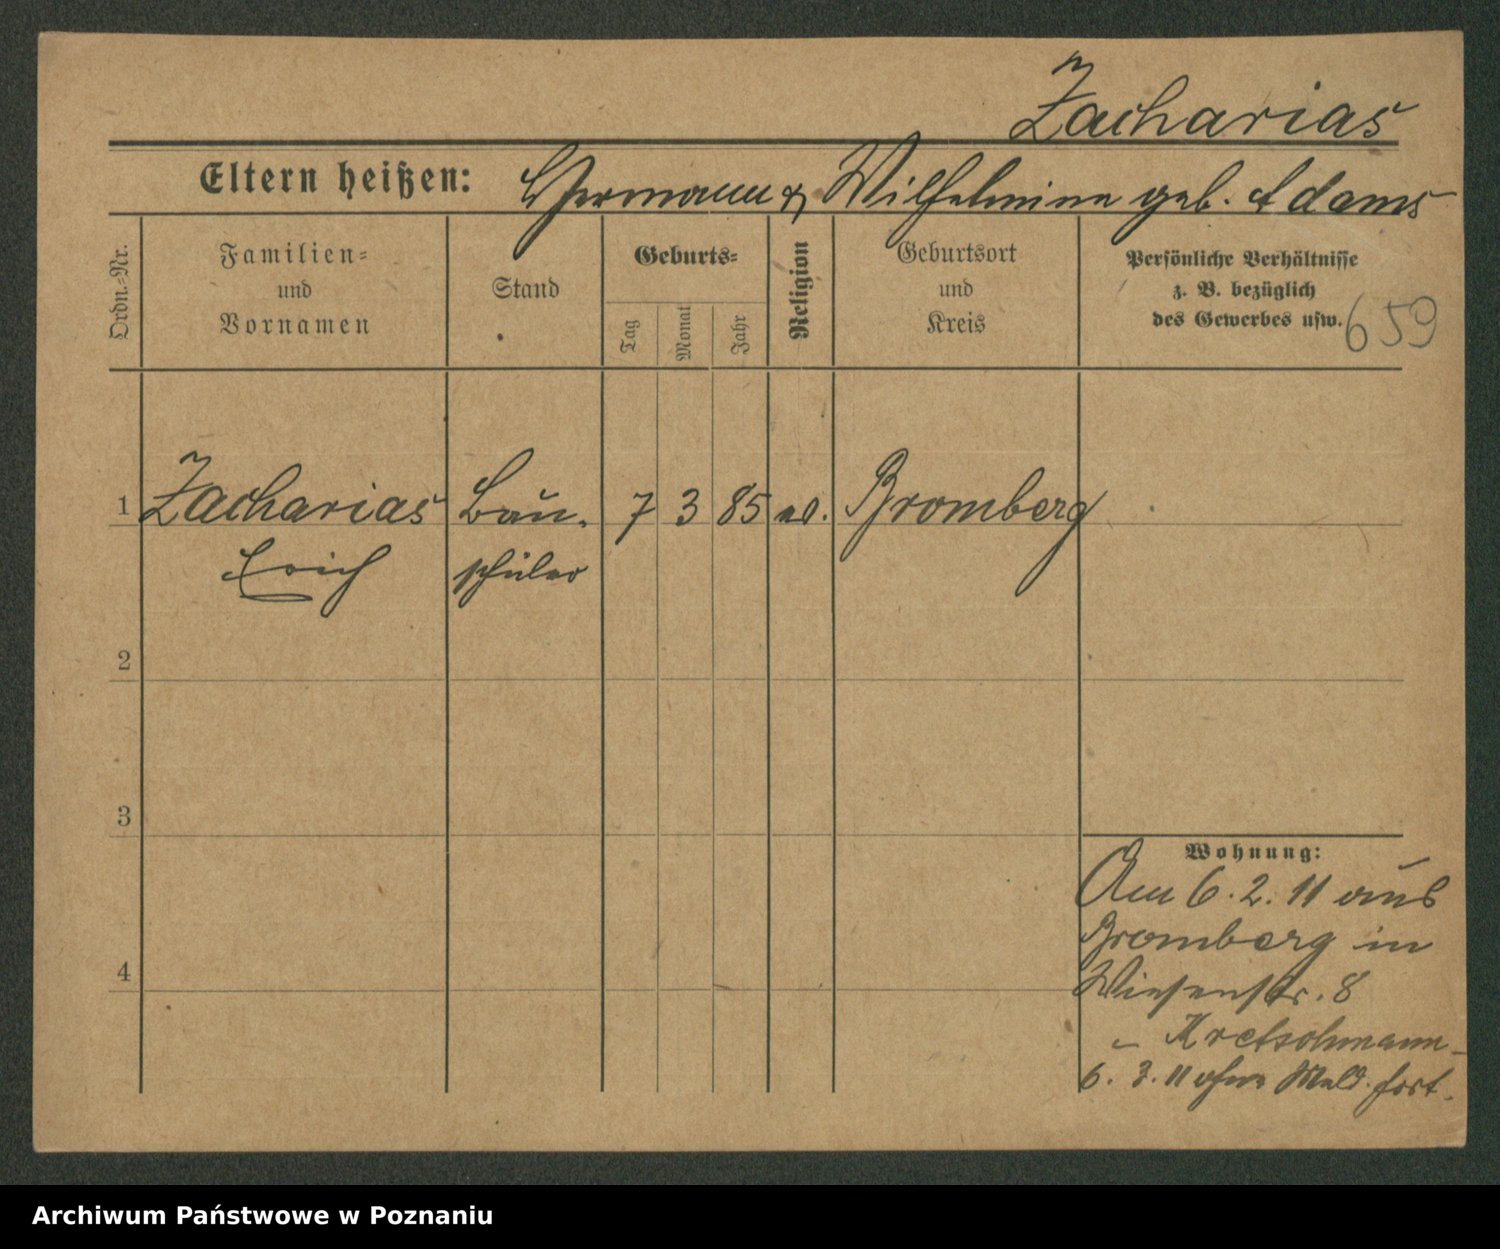 Zacharias
Eltern heißen: Hermann & Wilhelmine geb. Adams
Ordn.=Nr.
Familien=
und
Vornamen
Stand
Geburts=
Tag
Monat
Jahr
Religion
Geburtsort
und
Kreis
Persönliche Verhältnisse
z. B. bezüglich
des Gewerbes usw.
659
1 Zacharias Bau- 7 3 85 Bromberg
Erich schüler
2
3
4
Wohnung:
Am 6.2.11 aus
Bromberg in
Wiesenstr. 8
- Kretschmann -
6. 3. 11 ohne Meld. fort.
Archiwum Państwowe w Poznaniu